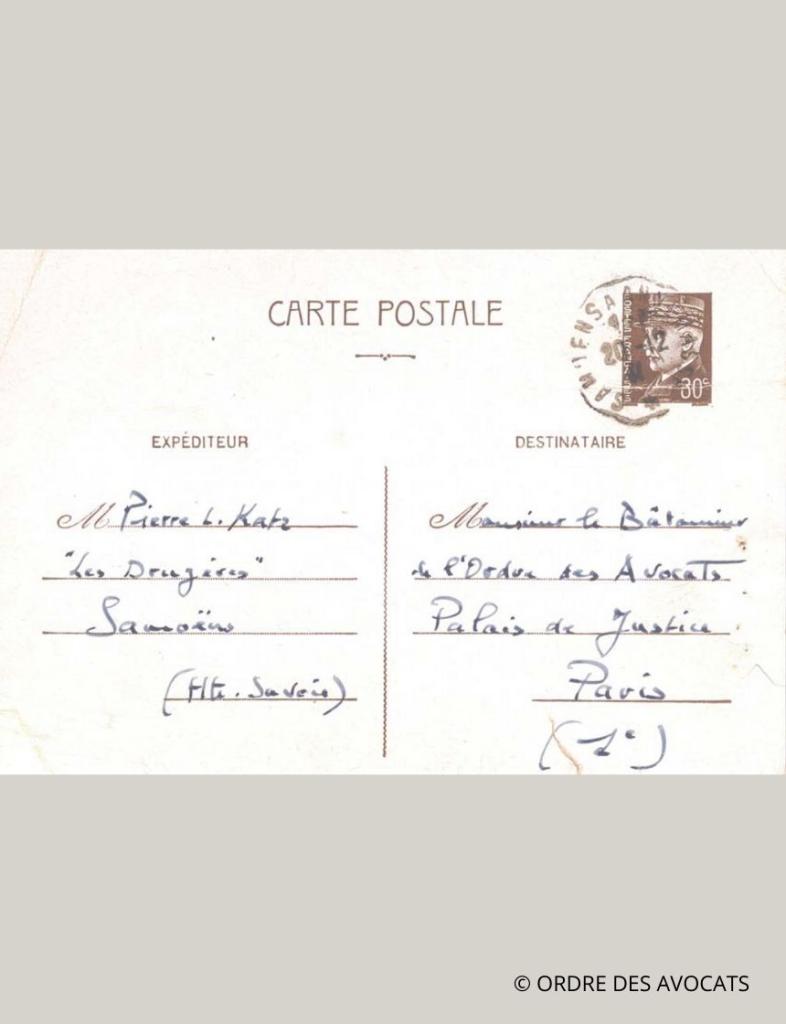 CARTE POSTALE
20 -12
80c
EXPÉDITEUR
DESTINATAIRE
M Pierre L. Katz
"Les Drugères"
Samoëns
(Hte. Savoie)
Monsieur le Bâtonnier
de l'Ordre des Avocats
Palais de Justice
Paris
(1e)
© ORDRE DES AVOCATS